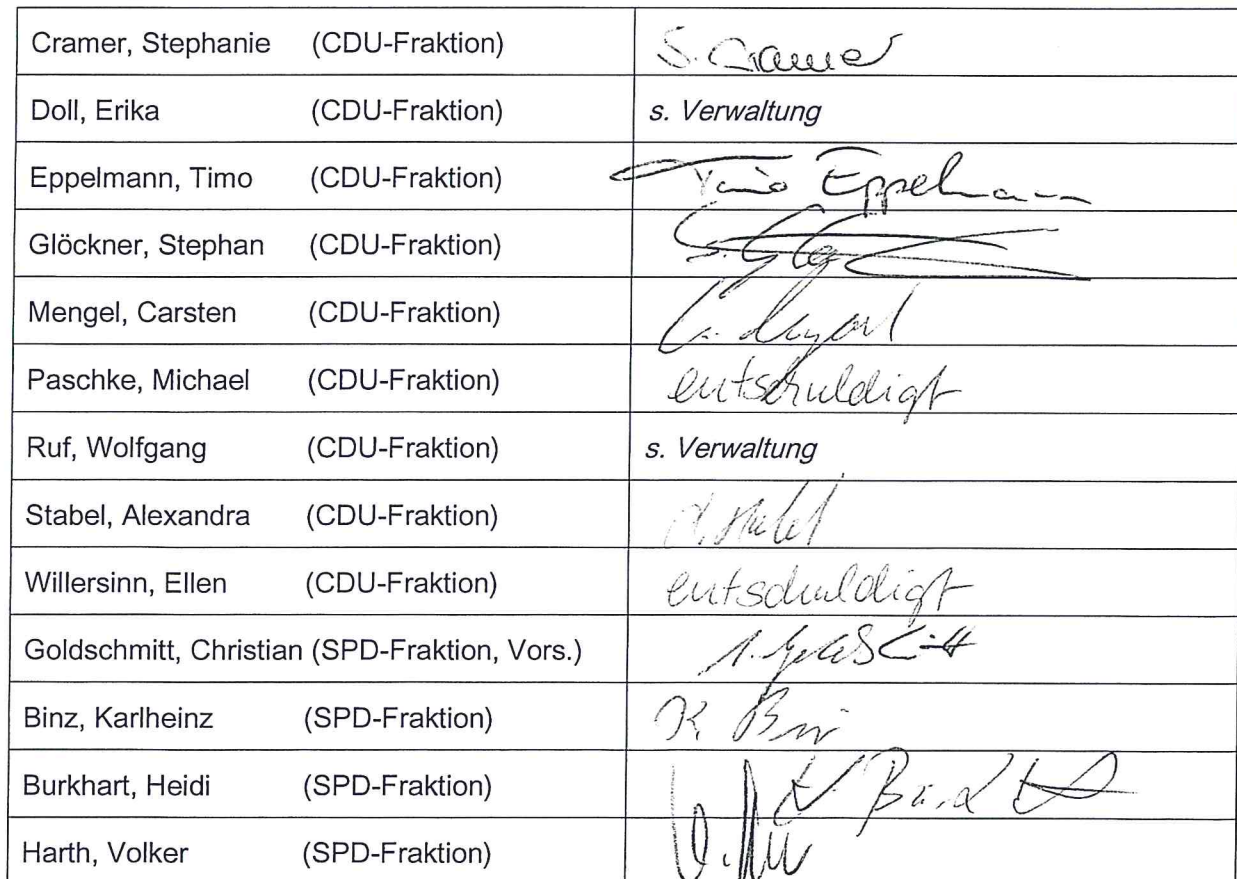 Cramer, Stephanie (CDU-Fraktion) S. Cramer
Doll, Erika (CDU-Fraktion) s. Verwaltung
Eppelmann, Timo (CDU-Fraktion) Timo Eppelmann
Glöckner, Stephan (CDU-Fraktion)
Mengel, Carsten (CDU-Fraktion)
Paschke, Michael (CDU-Fraktion) entschuldigt
Ruf, Wolfgang (CDU-Fraktion) s. Verwaltung
Stabel, Alexandra (CDU-Fraktion) A. Stabel
Willersinn, Ellen (CDU-Fraktion) entschuldigt
Goldschmitt, Christian (SPD-Fraktion, Vors.)
Binz, Karlheinz (SPD-Fraktion) K. Binz
Burkhart, Heidi (SPD-Fraktion)
Harth, Volker (SPD-Fraktion)